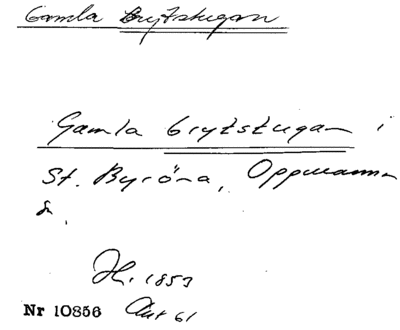 Gamla Brytstugan
Gamla brytstugan i
St. Byröna, Oppmanna
s.
H. 1853
Nr 10856 Aut 61